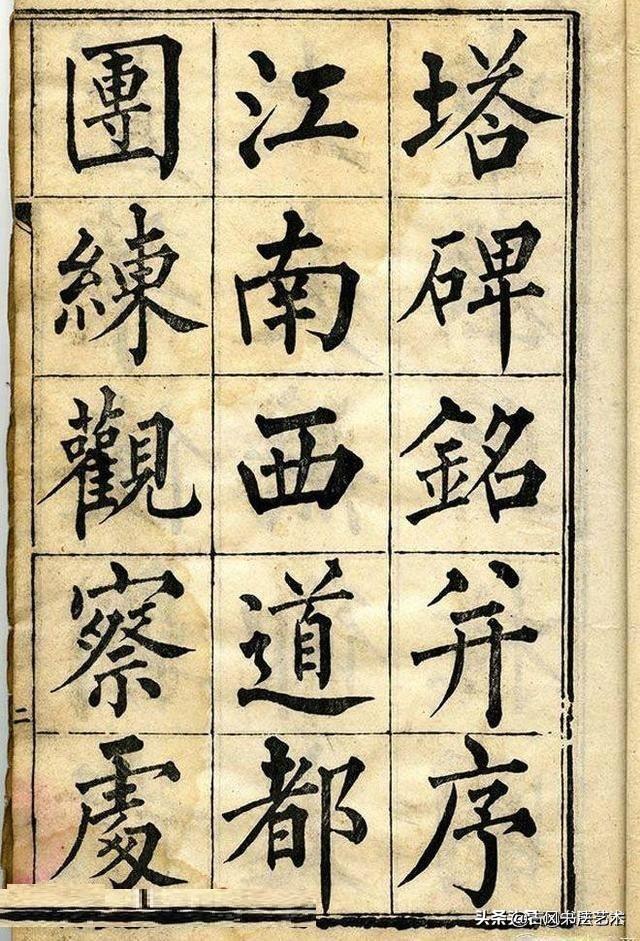 塔碑銘并序
江南西道都
團練觀察處
二
头条@古风书法艺术